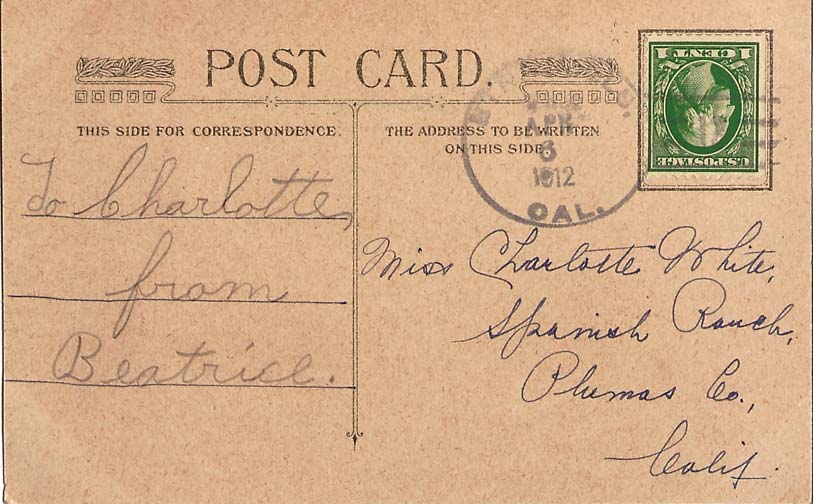 POST CARD.
THIS SIDE FOR CORRESPONDENCE.
THE ADDRESS TO BE WRITTEN
ON THIS SIDE.
APR
6
1912
CAL.
U.S. POSTAGE
1 CENT 1
To Charlotte,
from
Beatrice.
Miss Charlotte White,
Spanish Ranch,
Plumas Co.,
Calif.